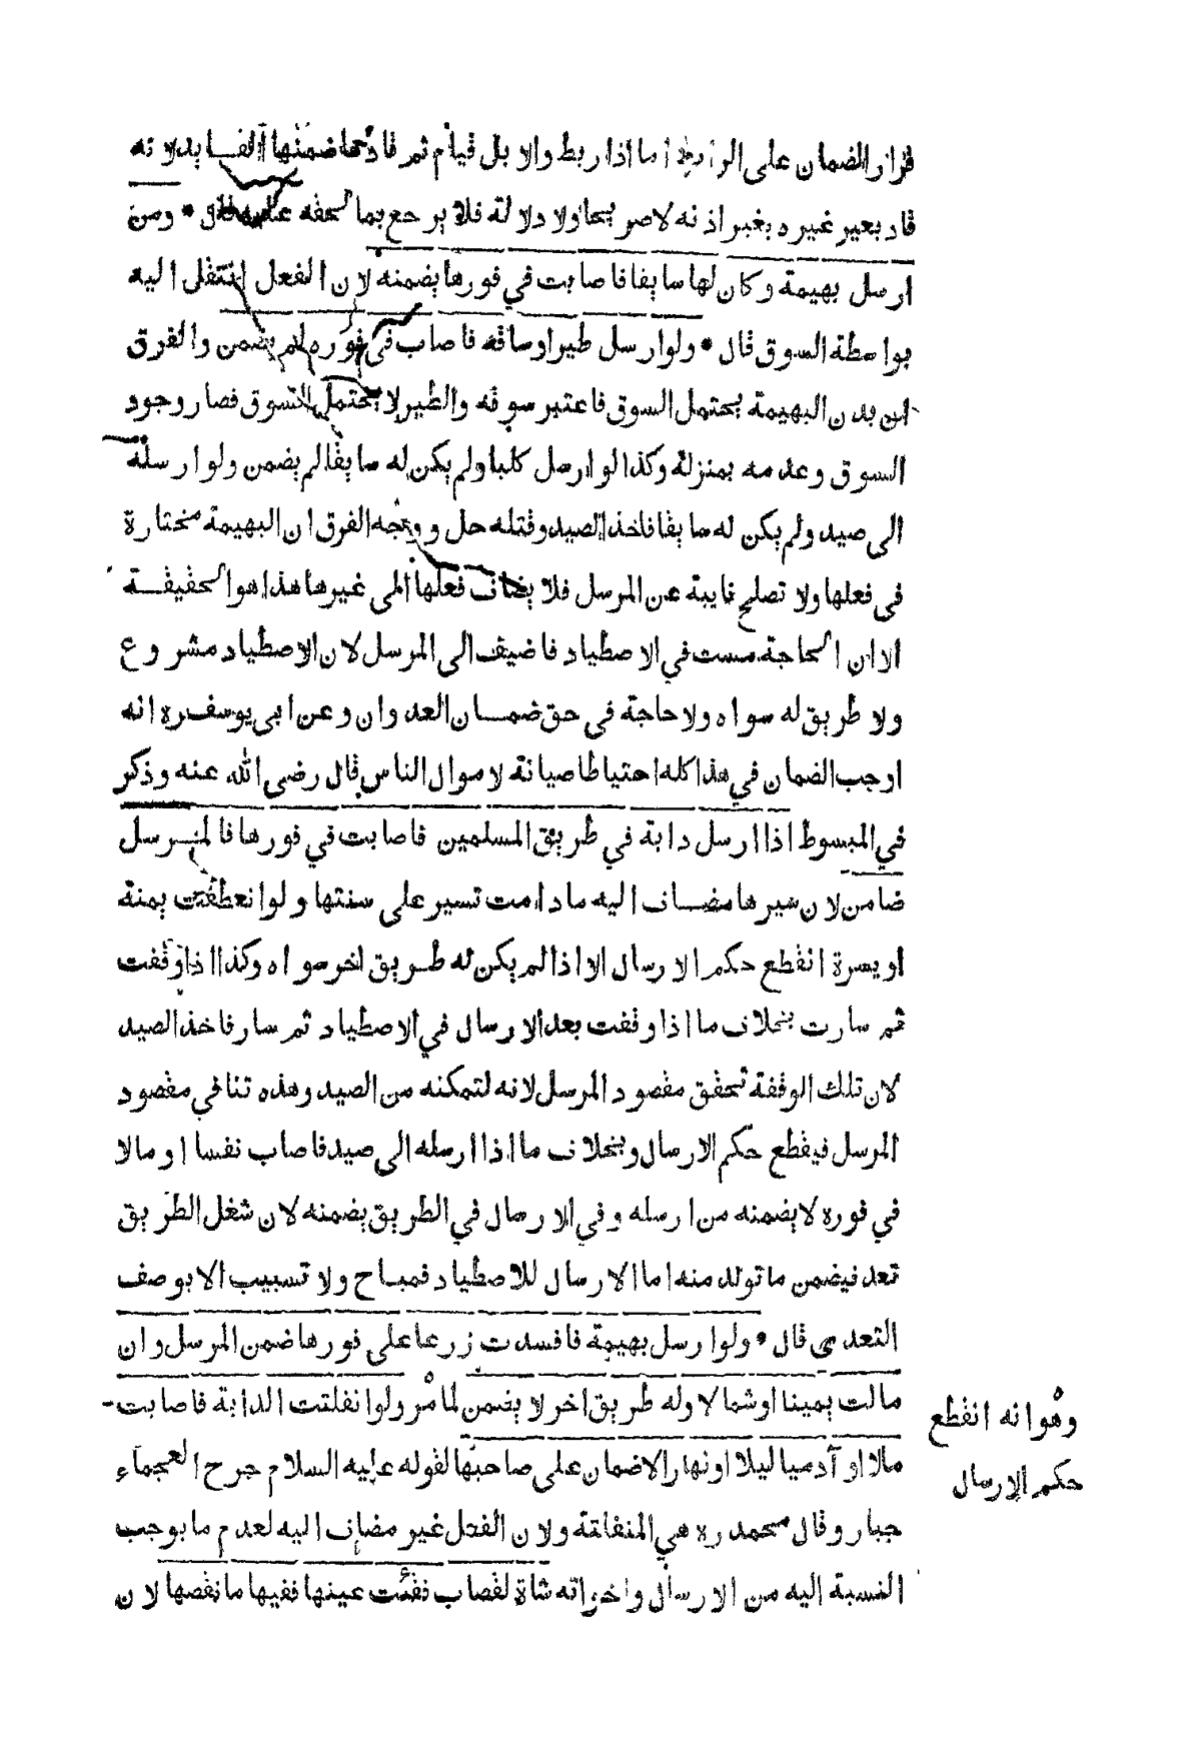 قرار الضمان على الرابط اما اذا ربط والابل قيام ثم قادها ضمنها القايد لانه
قاد بعير غيره بغير اذنه لا صريحا ولا دلالة فلا يرجع بما لحقه عليه قال • ومن
ارسل بهيمة وكان لها سايقا فاصابت في فورها يضمنه لان الفعل انتقل اليه
بواسطة السوق قال • ولو ارسل طيرا وساقه فاصاب في فوره لم يضمن والفرق
ان بدن البهيمة يحتمل السوق فاعتبر سوقه والطير لا يحتمل السوق فصار وجود
السوق وعدمه بمنزلة وكذا لو ارسل كلبا ولم يكن له سايقا لم يضمن ولو ارسله
الى صيد ولم يكن له سايقا فاخذ الصيد وقتله حل ووجه الفرق ان البهيمة مختارة
فى فعلها ولا تصلح نايبة عن المرسل فلا يضاف فعلها الى غيرها هذا هو الحقيقة
الا ان الحاجة مست في الاصطياد فاضيف الى المرسل لان الاصطياد مشروع
ولا طريق له سواه ولا حاجة في حق ضمان العدوان وعن ابى يوسف ره انه
اوجب الضمان في هذا كله احتياطا صيانة لاموال الناس قال رضى الله عنه وذكر
في المبسوط اذا ارسل دابة في طريق المسلمين فاصابت في فورها فالمرسل
ضامن لان سيرها مضاف اليه ما دامت تسير على سنتها ولو انعطفت يمنة
او يسرة انقطع حكم الارسال الا اذا لم يكن له طريق اخر سواه وكذا اذا وقفت
ثم سارت بخلاف ما اذا وقفت بعد الارسال في الاصطياد ثم سار فاخذ الصيد
لان تلك الوقفة تحقق مقصود المرسل لانه لتمكنه من الصيد وهذه تنافي مقصود
المرسل فيقطع حكم الارسال وبخلاف ما اذا ارسله الى صيد فاصاب نفسا او مالا
في فوره لا يضمنه من ارسله وفي الارسال في الطريق يضمنه لان شغل الطريق
تعد فيضمن ما تولد منه اما الارسال للاصطياد فمباح ولا تسبيب الا بوصف
التعدى قال • ولو ارسل بهيمة فافسدت زرعا على فورها ضمن المرسل وان
مالت يمينا او شمالا وله طريق اخر لا يضمن لما مر ولو انفلتت الدابة فاصابت
مالا او آدميا ليلا او نهارا لا ضمان على صاحبها لقوله عليه السلام جرح العجماء
جبار وقال محمد ره هي المنفلتة ولان الفعل غير مضاف اليه لعدم ما يوجب
النسبة اليه من الارسال واخواته شاة لقصاب فقئت عينها ففيها ما نقصها لان
وهو انه انقطع
حكم الارسال